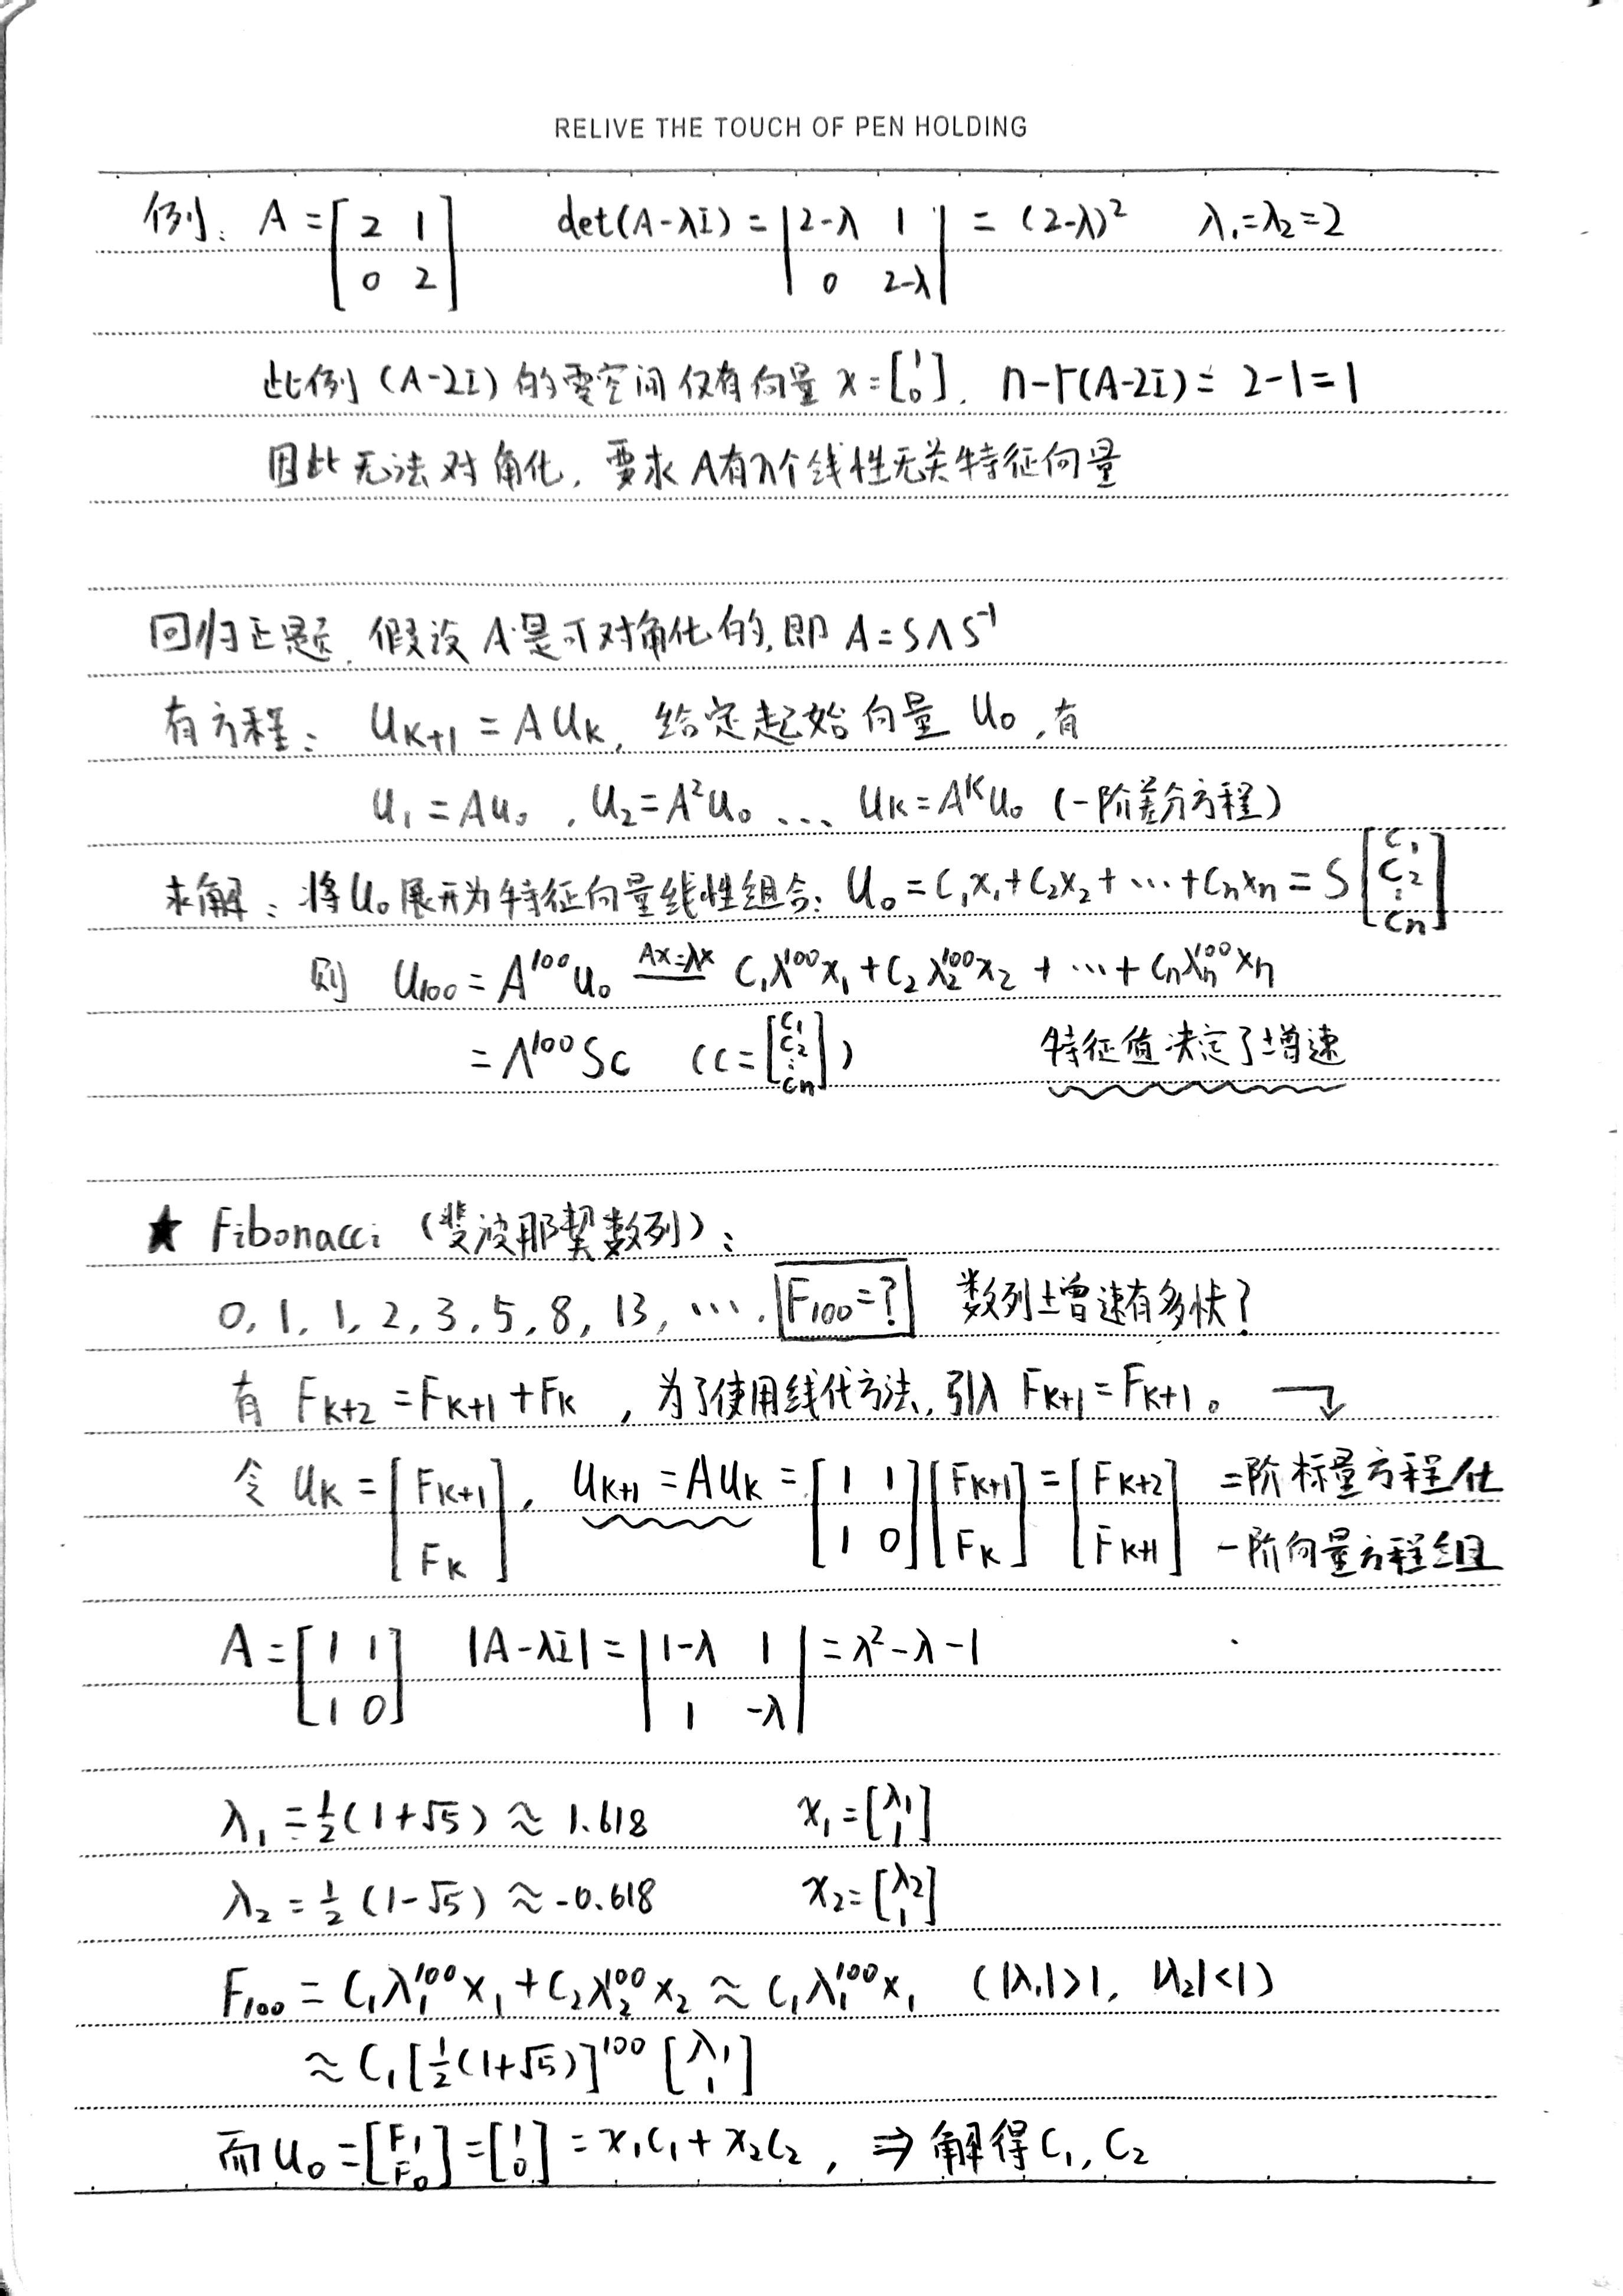 RELIVE THE TOUCH OF PEN HOLDING
例: A = [2 1; 0 2] det(A-λI) = |2-λ 1; 0 2-λ| = (2-λ)² λ₁=λ₂=2
此例 (A-2I) 的零空间仅有向量 x = [1; 0]. n-r(A-2I) = 2-1=1
因此无法对角化, 要求 A有n个线性无关特征向量
回归正题. 假设 A是可对角化的, 即 A = SΛS⁻¹
有方程: u_{k+1} = Au_k, 给定起始向量 u₀, 有
u₁ = Au₀, u₂ = A²u₀ ... u_k = Aᵏu₀ (一阶差分方程)
求解: 将u₀展开为特征向量线性组合: u₀ = c₁x₁ + c₂x₂ + ⋯ + cₙxₙ = S[c₁; c₂; ⋮; cₙ]
则 u₁₀₀ = A¹⁰⁰u₀ =(Ax=λx)= c₁λ¹⁰⁰x₁ + c₂λ₂¹⁰⁰x₂ + ⋯ + cₙλₙ¹⁰⁰xₙ
= Λ¹⁰⁰Sc (c = [c₁; c₂; ⋮; cₙ]) 特征值决定了增速
★ Fibonacci (斐波那契数列):
0, 1, 1, 2, 3, 5, 8, 13, ⋯. F₁₀₀=? 数列增速有多快?
有 F_{k+2} = F_{k+1} + F_k, 为了使用线代方法, 引入 F_{k+1} = F_{k+1}。
令 u_k = [F_{k+1}; F_k], u_{k+1} = Au_k = [1 1; 1 0][F_{k+1}; F_k] = [F_{k+2}; F_{k+1}] 二阶标量方程化
一阶向量方程组
A = [1 1; 1 0] |A-λI| = |1-λ 1; 1 -λ| = λ²-λ-1
λ₁ = ½(1+√5) ≈ 1.618 x₁ = [λ₁; 1]
λ₂ = ½(1-√5) ≈ -0.618 x₂ = [λ₂; 1]
F₁₀₀ = c₁λ₁¹⁰⁰x₁ + c₂λ₂¹⁰⁰x₂ ≈ c₁λ₁¹⁰⁰x₁ (|λ₁|>1, |λ₂|<1)
≈ c₁[½(1+√5)]¹⁰⁰ [λ₁; 1]
而 u₀ = [F₁; F₀] = [1; 0] = x₁c₁ + x₂c₂, ⇒ 解得 c₁, c₂